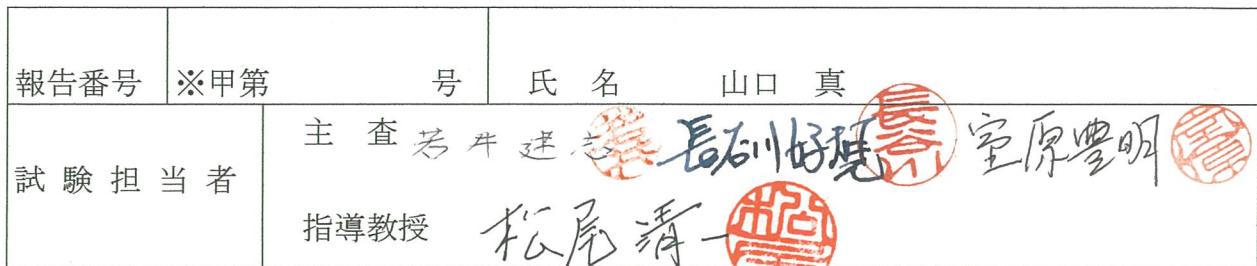 報告番号 ※甲第 号 氏 名 山口 真
試 験 担 当 者
主 査 若井建志 長谷川好規 室原豊明
指導教授 松尾清一